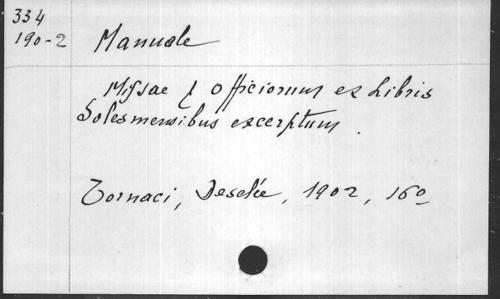 334
190-2
Manuale
Missae & Officiorum ex Libris
Solesmensibus excerptum.
Tornaci, Desclée, 1902, 16o